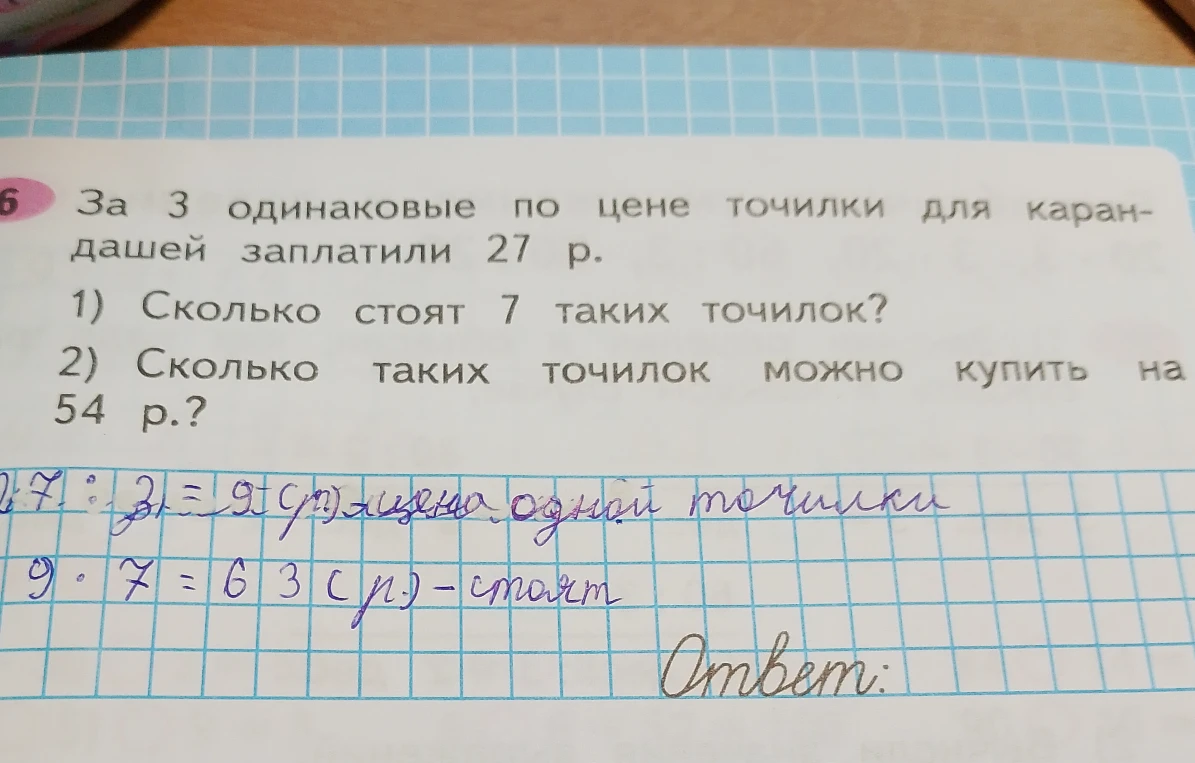 6 За 3 одинаковые по цене точилки для каран-
дашей заплатили 27 р.
1) Сколько стоят 7 таких точилок?
2) Сколько таких точилок можно купить на
54 р.?
27 : 3 = 9 (р.) - цена одной точилки
9 · 7 = 63 (р.) - стоят
Ответ: